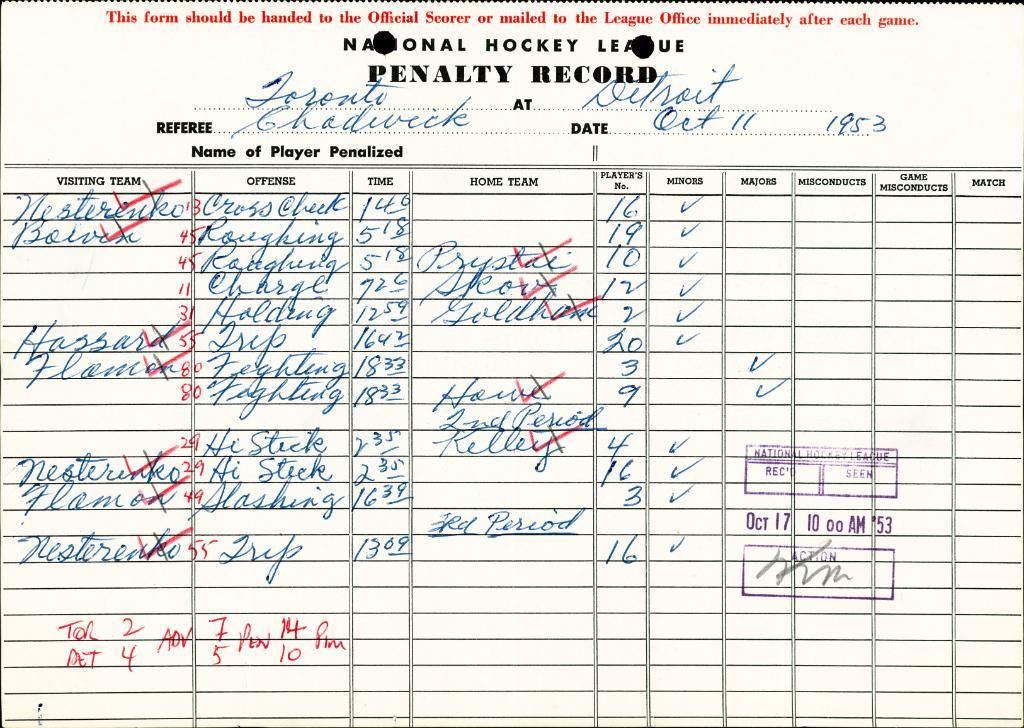 This form should be handed to the Official Scorer or mailed to the League Office immediately after each game.
NATIONAL HOCKEY LEAGUE
PENALTY RECORD
Toronto AT Detroit
REFEREE Chadwick DATE Oct 11 1953
Name of Player Penalized
VISITING TEAM OFFENSE TIME HOME TEAM PLAYER'S No. MINORS MAJORS MISCONDUCTS GAME MISCONDUCTS MATCH
Nesterenko 13 Cross Check 146 16 ✓
Boivin 45 Roughing 518 19 ✓
45 Roughing 518 Prystai 10 ✓
11 Charge 726 Skov 12 ✓
31 Holding 1259 Goldham 2 ✓
Hassard 55 Trip 1642 20 ✓
Flaman 80 Fighting 1833 3 ✓
80 Fighting 1833 Howe 9 ✓
2nd Period
29 Hi Stick 235 Kelley 4 ✓
Nesterenko 29 Hi Stick 235 16 ✓
Flaman 49 Slashing 1639 3 ✓
3rd Period
Nesterenko 55 Trip 1309 16 ✓
NATIONAL HOCKEY LEAGUE
REC'D SEEN
OCT 17 10 00 AM '53
ACTION
TOR 2 ADV 7 PEN 14 PIM
DET 4 5 10